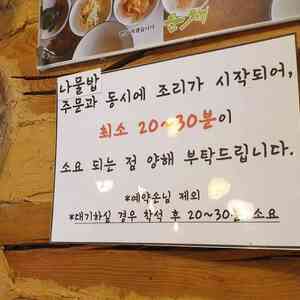 나물밥
주문과 동시에 조리가 시작되어,
최소 20~30분이
소요 되는 점 양해 부탁드립니다.
*예약손님 제외
*대기하실 경우 착석 후 20~30분 소요